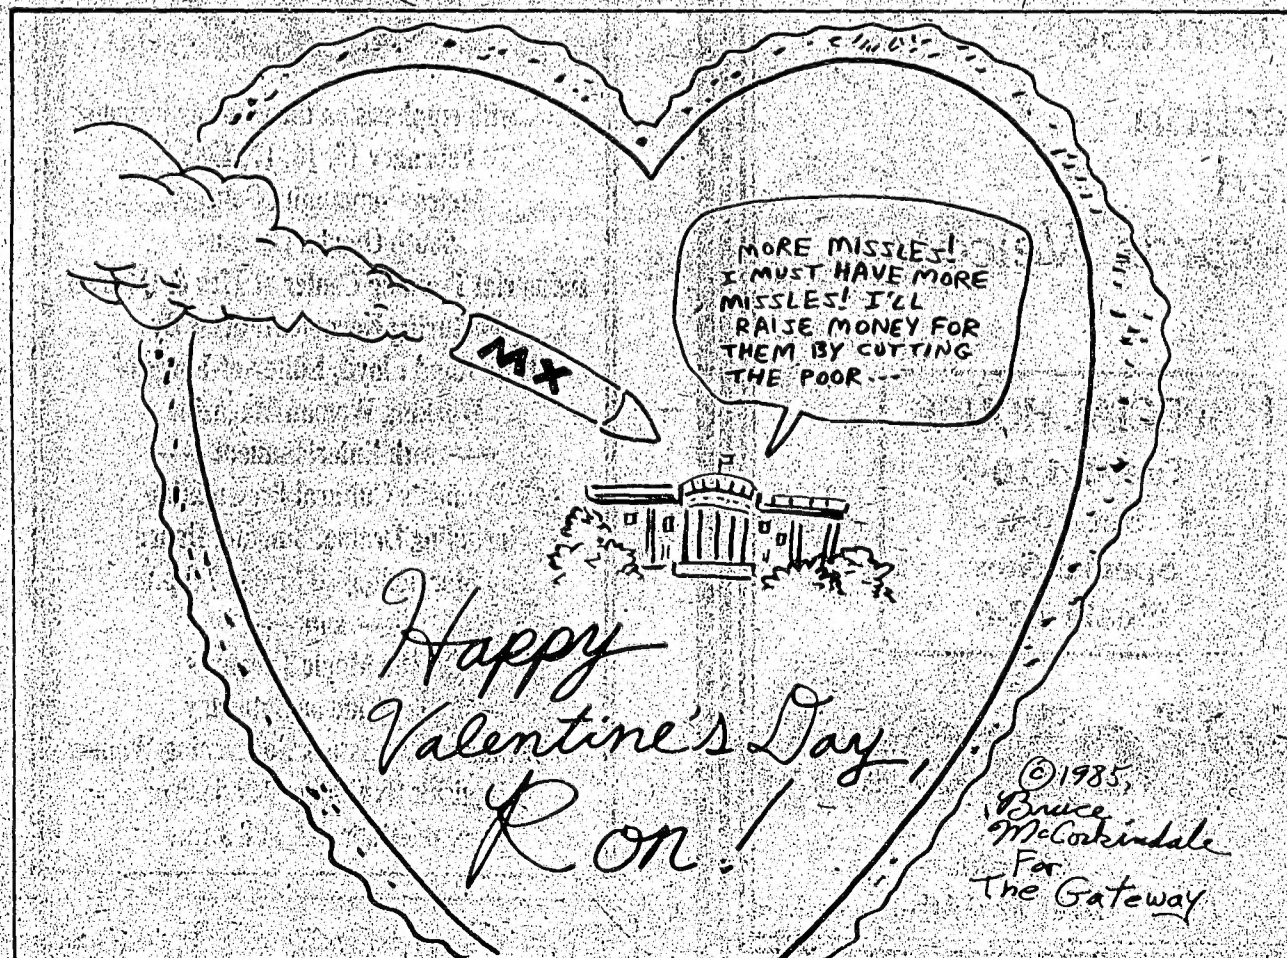 MORE MISSLES!
I MUST HAVE MORE
MISSLES! I'LL
RAISE MONEY FOR
THEM BY CUTTING
THE POOR---
MX
Happy
Valentine's Day,
Ron!
©1985,
Bruce
McCorkindale
For
The Gateway